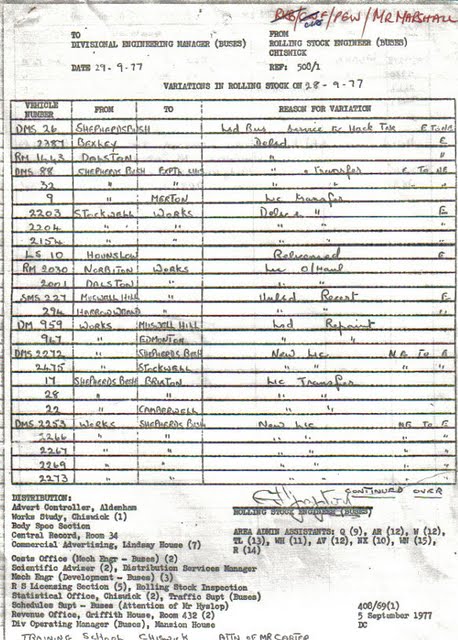 DMS/ /PGW/MR MARSHALL
TO FROM
DIVISIONAL ENGINEERING MANAGER (BUSES) ROLLING STOCK ENGINEER (BUSES)
CHISWICK
DATE 29-9-77 REF: 508/1
VARIATIONS IN ROLLING STOCK ON 28-9-77
VEHICLE NUMBER FROM TO REASON FOR VARIATION
DMS 26 SHEPHERDS BUSH Lic Bus Service to E
2387 BEXLEY E
RM 1443 DALSTON " "
DMS 88 SHEPHERDS BUSH " Transfer E TO NE
32 " " " " "
9 " MERTON Lic Transfer
2203 STOCKWELL WORKS " E
2204 " " " " "
2154 " " " " "
LS 10 HOUNSLOW Relicenced E
RM 2030 NORBITON WORKS Lic O/Haul
2001 DALSTON " " "
SMS 227 MUSWELL HILL Recert E
294 HARROW WEALD " " " "
DM 959 WORKS MUSWELL HILL Repaint
947 " EDMONTON " "
DMS 2272 " SHEPHERDS BSH New Lic NE TO E
2475 " STOCKWELL " " " "
17 SHEPHERDS BSH BRIXTON Lic Transfer
28 " " " "
22 " CAMBERWELL " "
DMS 2253 WORKS SHEPHERDS BUSH New Lic NE TO E
2266 " " " " " "
2267 " " " " " "
2269 " " " " " "
2273 " " " " " "
CONTINUED OVER
DISTRIBUTION: ROLLING STOCK ENGINEER (BUSES)
Advert Controller, Aldenham
Works Study, Chiswick (1)
Body Spec Section
Central Record, Room 34
Commercial Advertising, Lindsay House (7)
AREA ADMIN ASSISTANTS: Q (9), AR (12), W (12),
TL (13), WH (11), AV (12), NX (10), WN (15),
R (14)
Costs Office (Mech Engr - Buses) (2)
Scientific Adviser (2), Distribution Services Manager
Mech Engr (Development - Buses) (3)
R S Licensing Section (5), Rolling Stock Inspection
Statistical Office, Chiswick (2), Traffic Supt (Buses)
Schedules Supt - Buses (Attention of Mr Hyslop) 408/69(1)
Revenue Office, Griffith House, Room 432 (2) 5 September 1977
Div Operating Manager (Buses), Mansion House DC
TRAINING SCHOOL CHISWICK ATTN OF MR CARTER